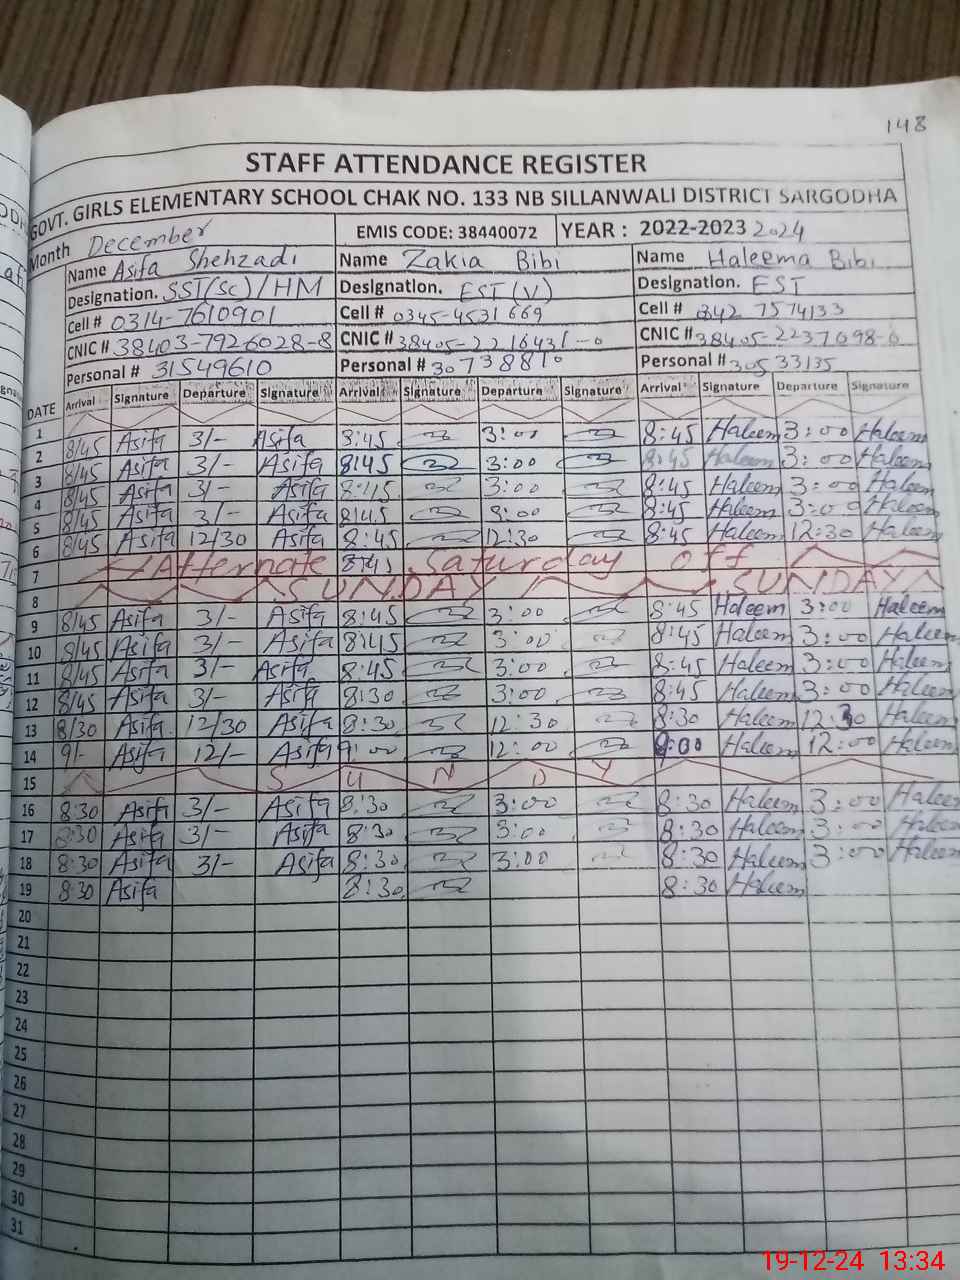 148
STAFF ATTENDANCE REGISTER
GOVT. GIRLS ELEMENTARY SCHOOL CHAK NO. 133 NB SILLANWALI DISTRICT SARGODHA
Month December EMIS CODE: 38440072 YEAR : 2022-2023 2024
Name Asifa Shehzadi Name Zakia Bibi Name Haleema Bibi
Designation. SST(Sc)/HM Designation. EST(V) Designation. EST
Cell # 0314-7610901 Cell # 0345-4531669 Cell # 0342 7574133
CNIC # 38403-7926028-8 CNIC # 38405-2216431-0 CNIC # 38405-2237098-0
Personal # 31549610 Personal # 30738810 Personal # 30533135
DATE Arrival Signature Departure Signature Arrival Signature Departure Signature Arrival Signature Departure Signature
1
2 8/45 Asifa 3/- Asifa 8:45 3:00 8:45 Haleem 3:00 Haleem
3 8/45 Asifa 3/- Asifa 8:45 3:00 8:45 Haleem 3:00 Haleem
4 8/45 Asifa 3/- Asifa 8:45 3:00 8:45 Haleem 3:00 Haleem
5 8/45 Asifa 3/- Asifa 8:45 3:00 8:45 Haleem 3:00 Haleem
6 8/45 Asifa 12/30 Asifa 8:45 12:30 8:45 Haleem 12:30 Haleem
7 Alternate 8:45 Saturday off
8 SUNDAY SUNDAY
9 8/45 Asifa 3/- Asifa 8:45 3:00 8:45 Haleem 3:00 Haleem
10 8/45 Asifa 3/- Asifa 8:45 3:00 8:45 Haleem 3:00 Haleem
11 8/45 Asifa 3/- Asifa 8:45 3:00 8:45 Haleem 3:00 Haleem
12 8/45 Asifa 3/- Asifa 8:30 3:00 8:45 Haleem 3:00 Haleem
13 8/30 Asifa 12/30 Asifa 8:30 12:30 8:30 Haleem 12:30 Haleem
14 9/- Asifa 12/- Asifa 9:00 12:00 9:00 Haleem 12:00 Haleem
15 S U N D Y
16 8:30 Asifa 3/- Asifa 8:30 3:00 8:30 Haleem 3:00 Haleem
17 8:30 Asifa 3/- Asifa 8:30 3:00 8:30 Haleem 3:00 Haleem
18 8:30 Asifa 3/- Asifa 8:30 3:00 8:30 Haleem 3:00 Haleem
19 8:30 Asifa 8:30 8:30 Haleem
20
21
22
23
24
25
26
27
28
29
30
31
19-12-24 13:34